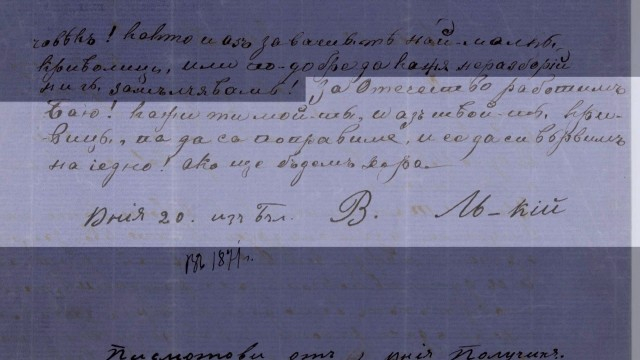 човѣкъ! както и азъ за вашитѣ най-малки
криволици, или по-добре да кажа неразборїи
ни ги замълчявамъ! За Отечество работимъ
баю! кажи ти мой-тѣ, и азъ твой-тѣ, кри-
вици, па да са поправиме, и се да си вървимъ
на едно! ако ще бѫдемъ хора.
Юнїя 20. изъ Бъл. В. Лъ-кїй
въ 1871 г.
Писмото ви отъ юнїя Получихъ